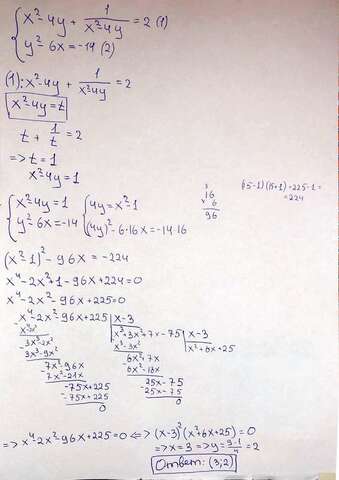 { x²-4y + 1/(x²-4y) = 2 (1)
{ y²-6x = -14 (2)
(1): x²-4y + 1/(x²-4y) = 2
x²-4y = t
t + 1/t = 2
=> t = 1
x²-4y = 1
{ x²-4y = 1 { 4y = x²-1
{ y²-6x = -14 { (4y)²-6·16x = -14·16
16
× 6
96
(15-1)(15+1) = 225-1 =
= 224
(x²-1)² - 96x = -224
x⁴-2x²+1-96x+224=0
x⁴-2x²-96x+225=0
x⁴-2x²-96x+225 | x-3
x⁴-3x³ | x³+3x²+7x-75 | x-3
3x³-2x² x³-3x² | x²+6x+25
3x³-9x² 6x²+7x
7x²-96x 6x²-18x
7x²-21x 25x-75
-75x+225 25x-75
-75x+225 0
0
=> x⁴-2x²-96x+225=0 <=> (x-3)²(x²+6x+25) = 0
=> x=3 => y = (9-1)/4 = 2
Ответ: (3;2)